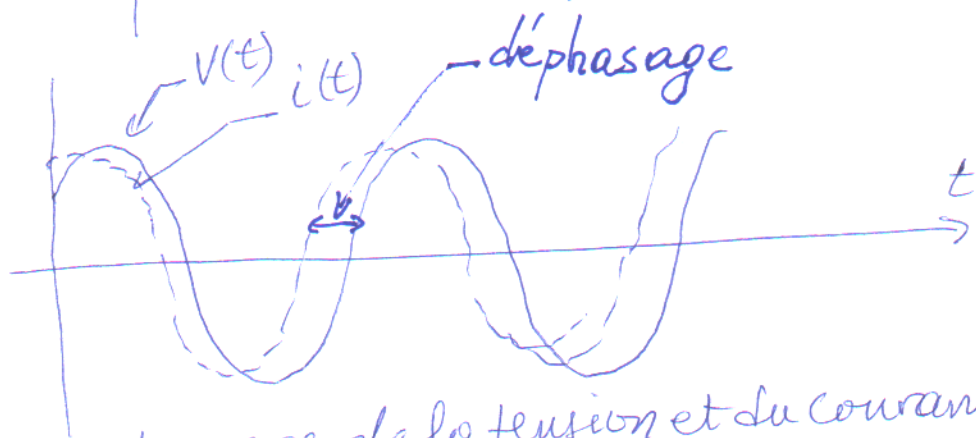 V(t)
i(t)
déphasage
t
de la tension et du couran